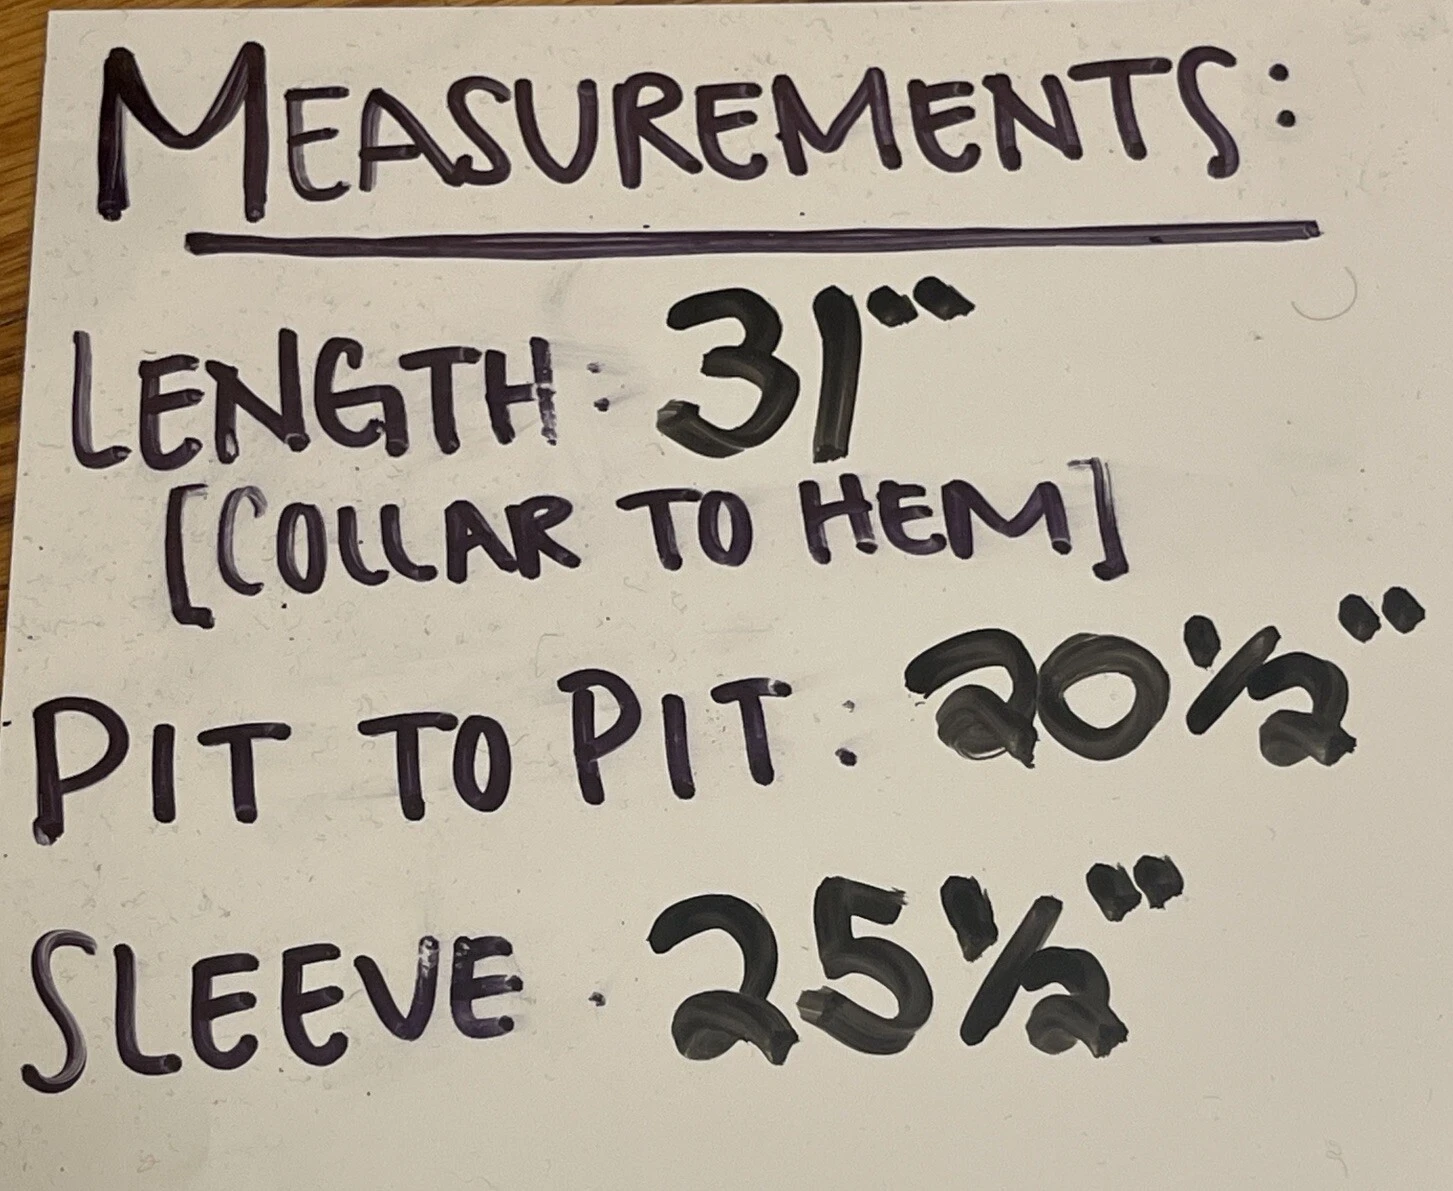 MEASUREMENTS:
LENGTH: 31"
[COLLAR TO HEM]
PIT TO PIT: 20 1/2"
SLEEVE. 25 1/2"